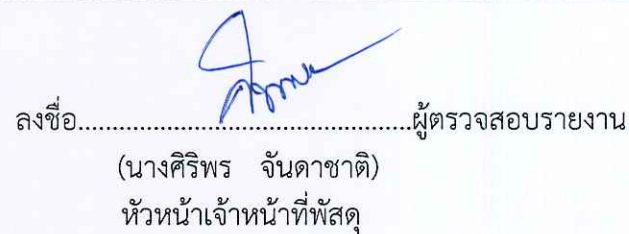 ลงชื่อ..................................................ผู้ตรวจสอบรายงาน
(นางศิริพร จันดาชาติ)
หัวหน้าเจ้าหน้าที่พัสดุ